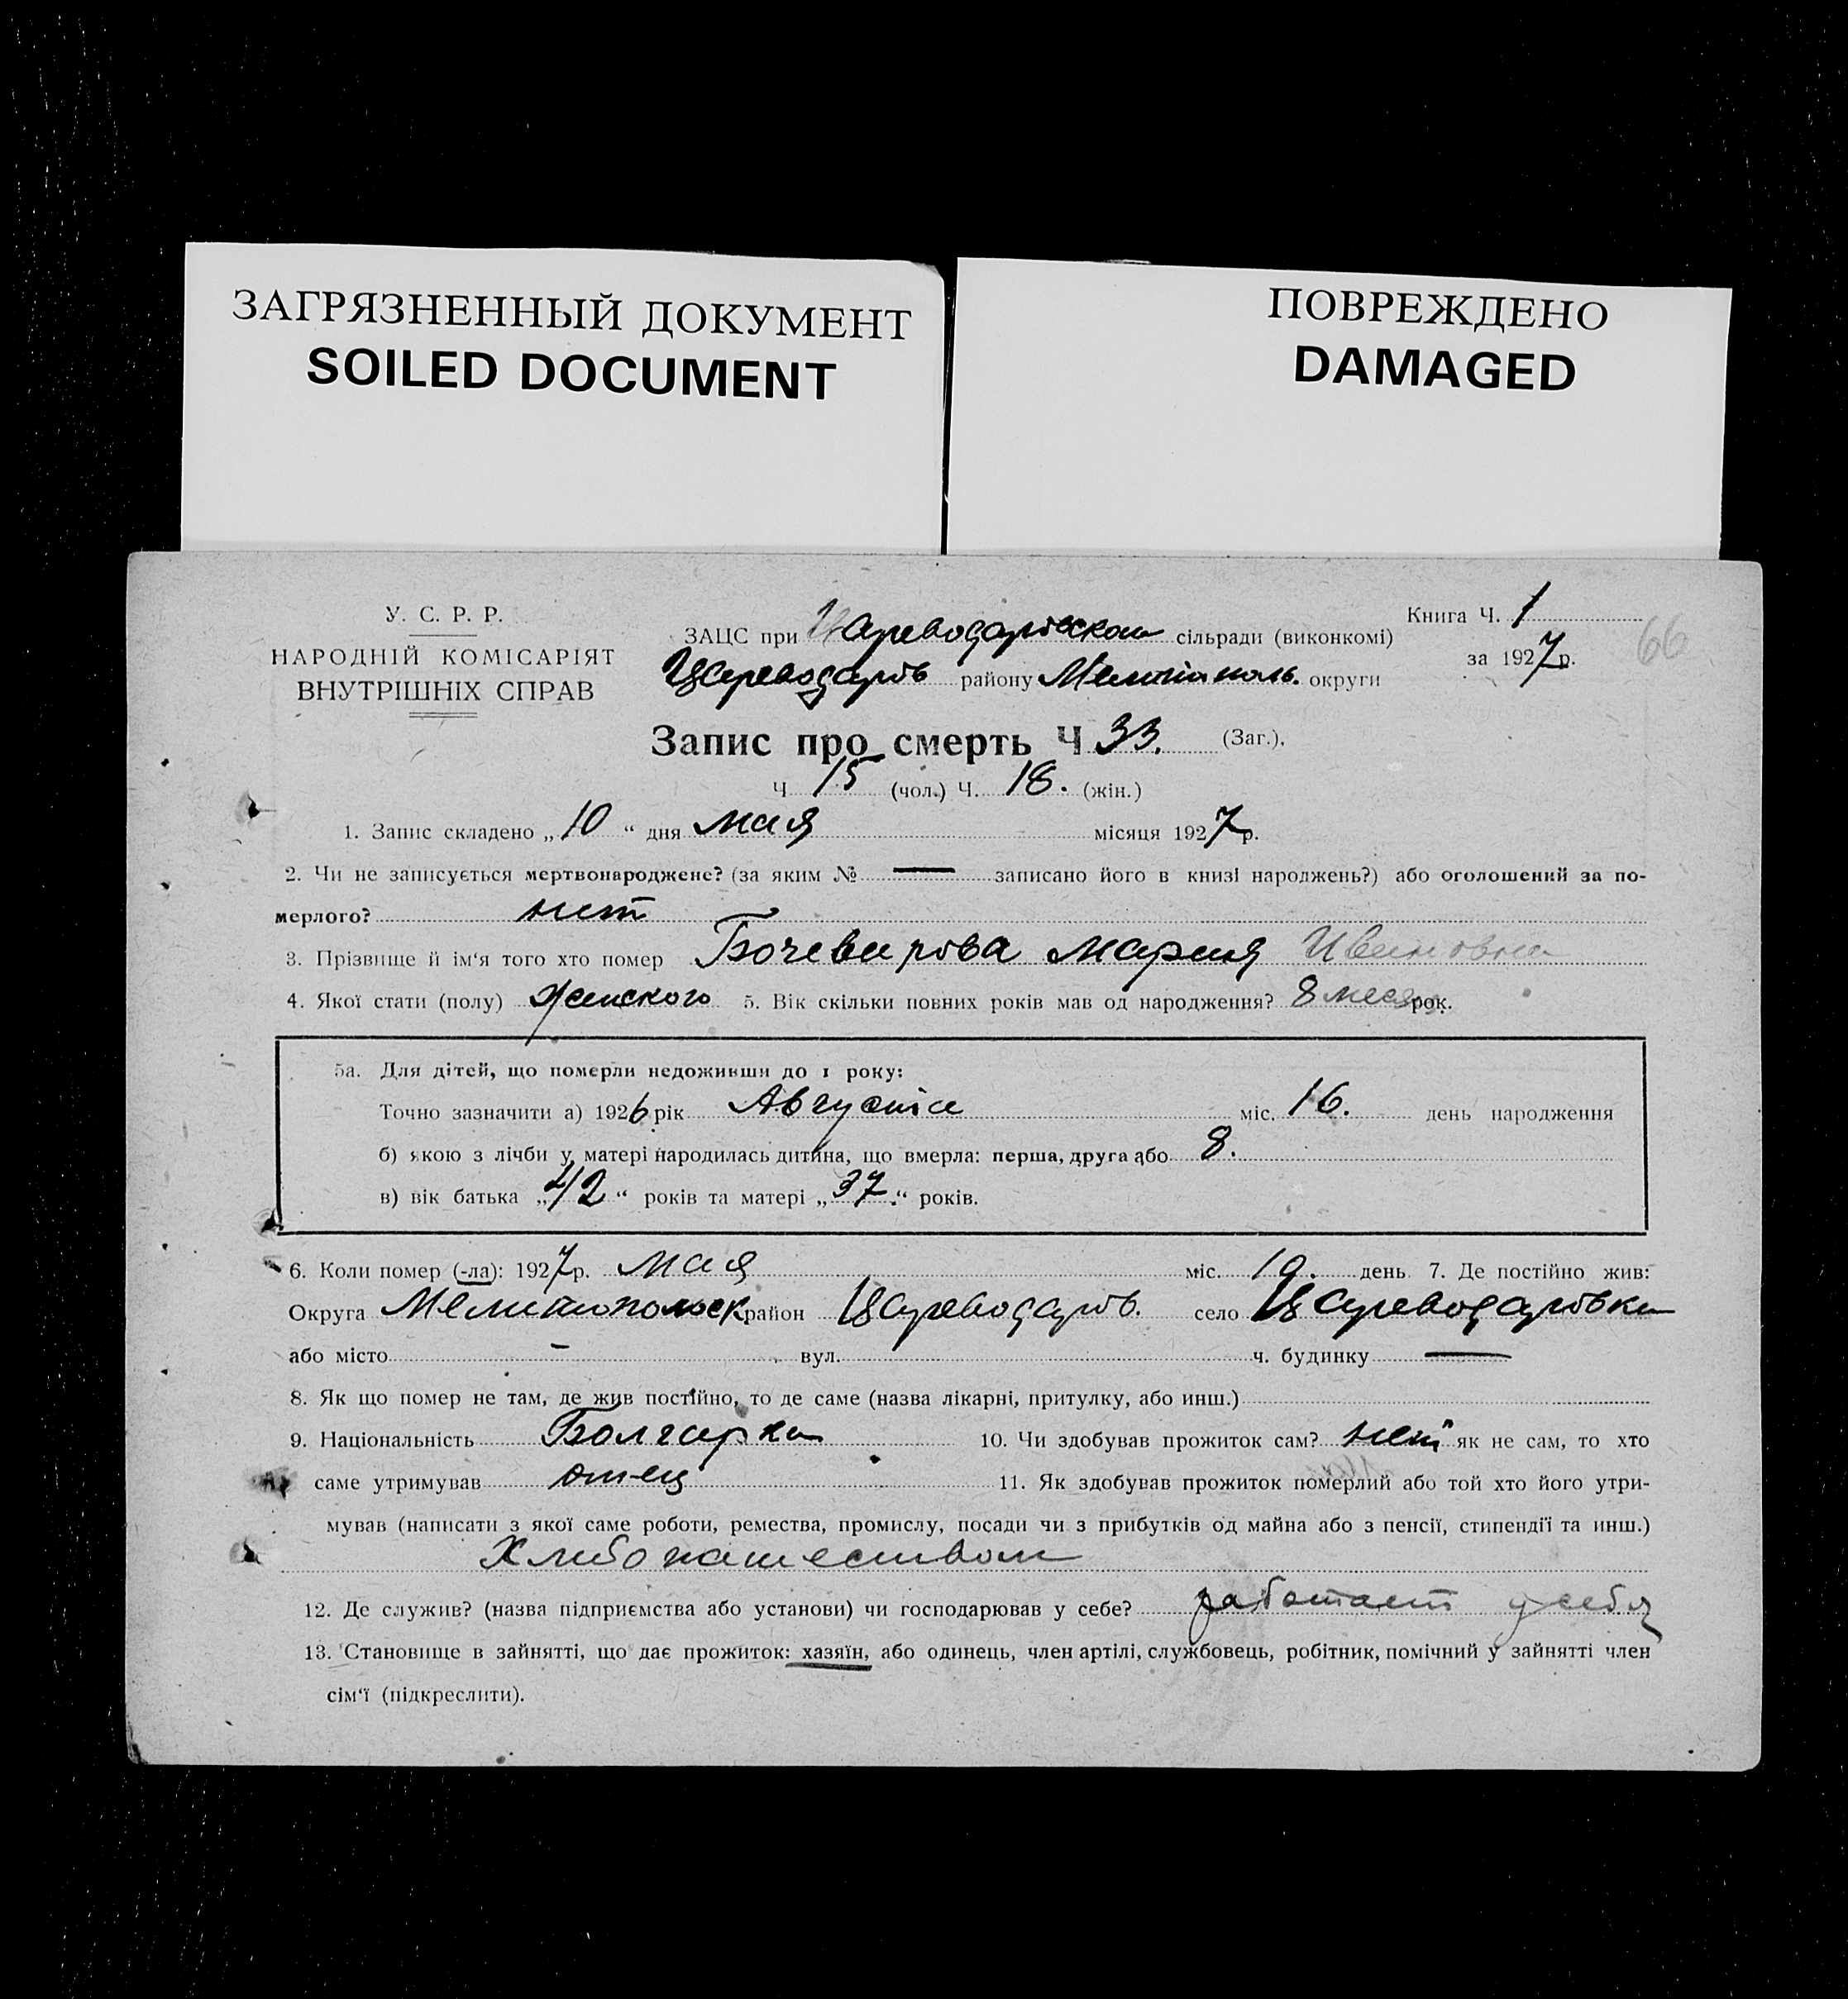 ЗАГРЯЗНЕННЫЙ ДОКУМЕНТ
SOILED DOCUMENT
ПОВРЕЖДЕНО
DAMAGED
У. С. Р. Р.
НАРОДНІЙ КОМІСАРІЯТ
ВНУТРІШНІХ СПРАВ
ЗАЦС при Цареводаровском сільради (виконкомі)
Цареводаров району Мелитополь. округи
Книга Ч. 1
за 1927 р.
66
Запис про смерть Ч 33. (Заг.).
Ч 15 (чол.) Ч. 18. (жін.)
1. Запис складено „10“ дня мая місяця 1927 р.
2. Чи не записується мертвонароджене? (за яким № — записано його в книзі народжень?) або оголошений за по-
мерлого? нет
3. Прізвище й ім‘я того хто помер Бочеварова Мария Ивановна
4. Якої стати (полу) женского 5. Вік скільки повних років мав од народження? 8 месяц рок.
5а. Для дітей, що померли недоживши до 1 року:
Точно зазначити а) 1926 рік Августа міс. 16. день народження
б) якою з лічби у матері народилась дитина, що вмерла: перша, друга або 8.
в) вік батька „42“ років та матері „37.“ років.
6. Коли помер (-ла): 1927 р. мая міс. 10. день 7. Де постійно жив:
Округа Мелитопольск район Цареводаров. село Цареводаровка
або місто — вул. ч. будинку —
8. Як що помер не там, де жив постійно, то де саме (назва лікарні, притулку, або инш.)
9. Національність Болгарка 10. Чи здобував прожиток сам? нет як не сам, то хто
саме утримував отец 11. Як здобував прожиток померлий або той хто його утри-
мував (написати з якої саме роботи, ремества, промислу, посади чи з прибутків од майна або з пенсії, стипендії та инш.)
Хлибопашеством
12. Де служив? (назва підприємства або установи) чи господарював у себе? работает у себя
13. Становище в зайнятті, що дає прожиток: хазяїн, або одинець, член артілі, службовець, робітник, помічний у зайнятті член
сім‘ї (підкреслити).